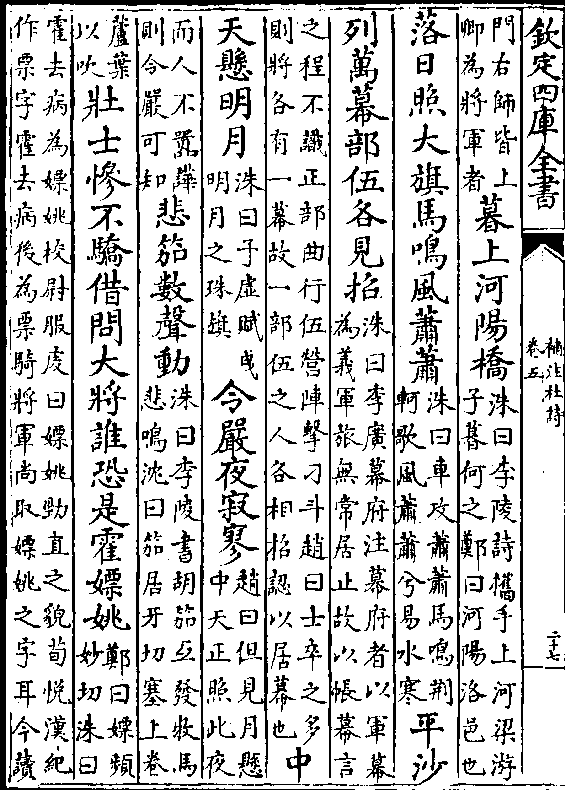 欽定四庫全書
補注杜詩
卷五
二十七
門右師皆上卿為將軍者暮上河陽橋洙曰李陵詩攜手上河梁游子暮何之鄭曰河陽洛邑也
落日照大旗馬鳴風蕭蕭洙曰車攻蕭蕭馬鳴荆軻歌風蕭蕭兮易水寒平沙
列萬幕部伍各見招洙曰李廣幕府注幕府者以軍幕為義軍旅無常居止故以帳幕言
之程不識正部曲行伍營陣擊刁斗趙曰士卒之多則將各有一幕故一部伍之人各相招認以居幕也中
天懸明月洙曰子虛賦曳明月之珠旗令嚴夜寂寥趙曰但見月懸中天正照此夜
而人不嚻譁則令嚴可知悲笳數聲動洙曰李陵書胡笳互發牧馬悲鳴沈曰笳居牙切塞上卷
蘆葉以吹壯士慘不驕借問大將誰恐是霍嫖姚鄭曰嫖頻妙切洙曰
霍去病為嫖姚校尉服虔曰嫖姚勁直之貌荀悦漢紀作票字霍去病後為票騎將軍尚取嫖姚之字耳今讀